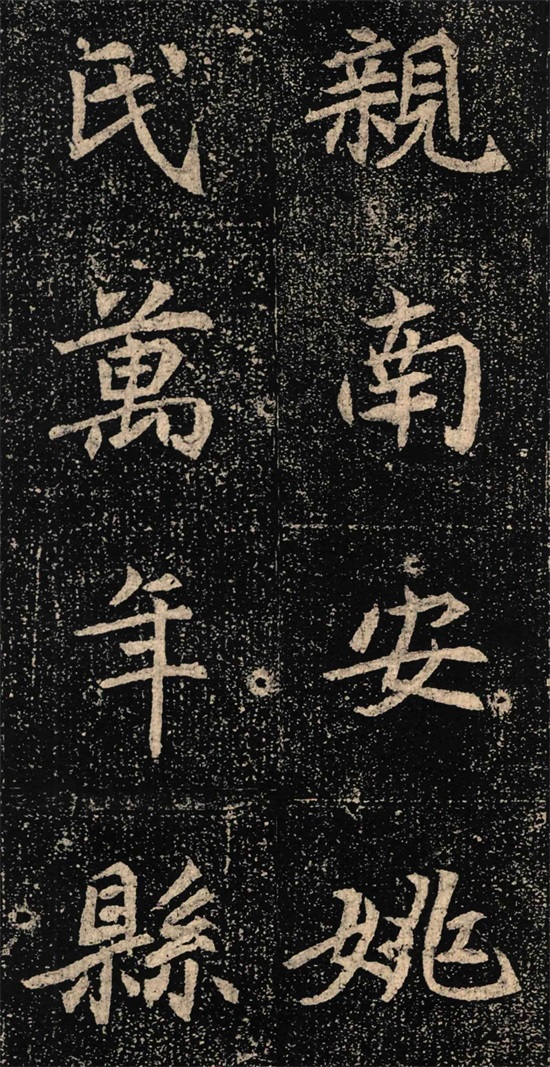 親南安姚
氏萬年縣